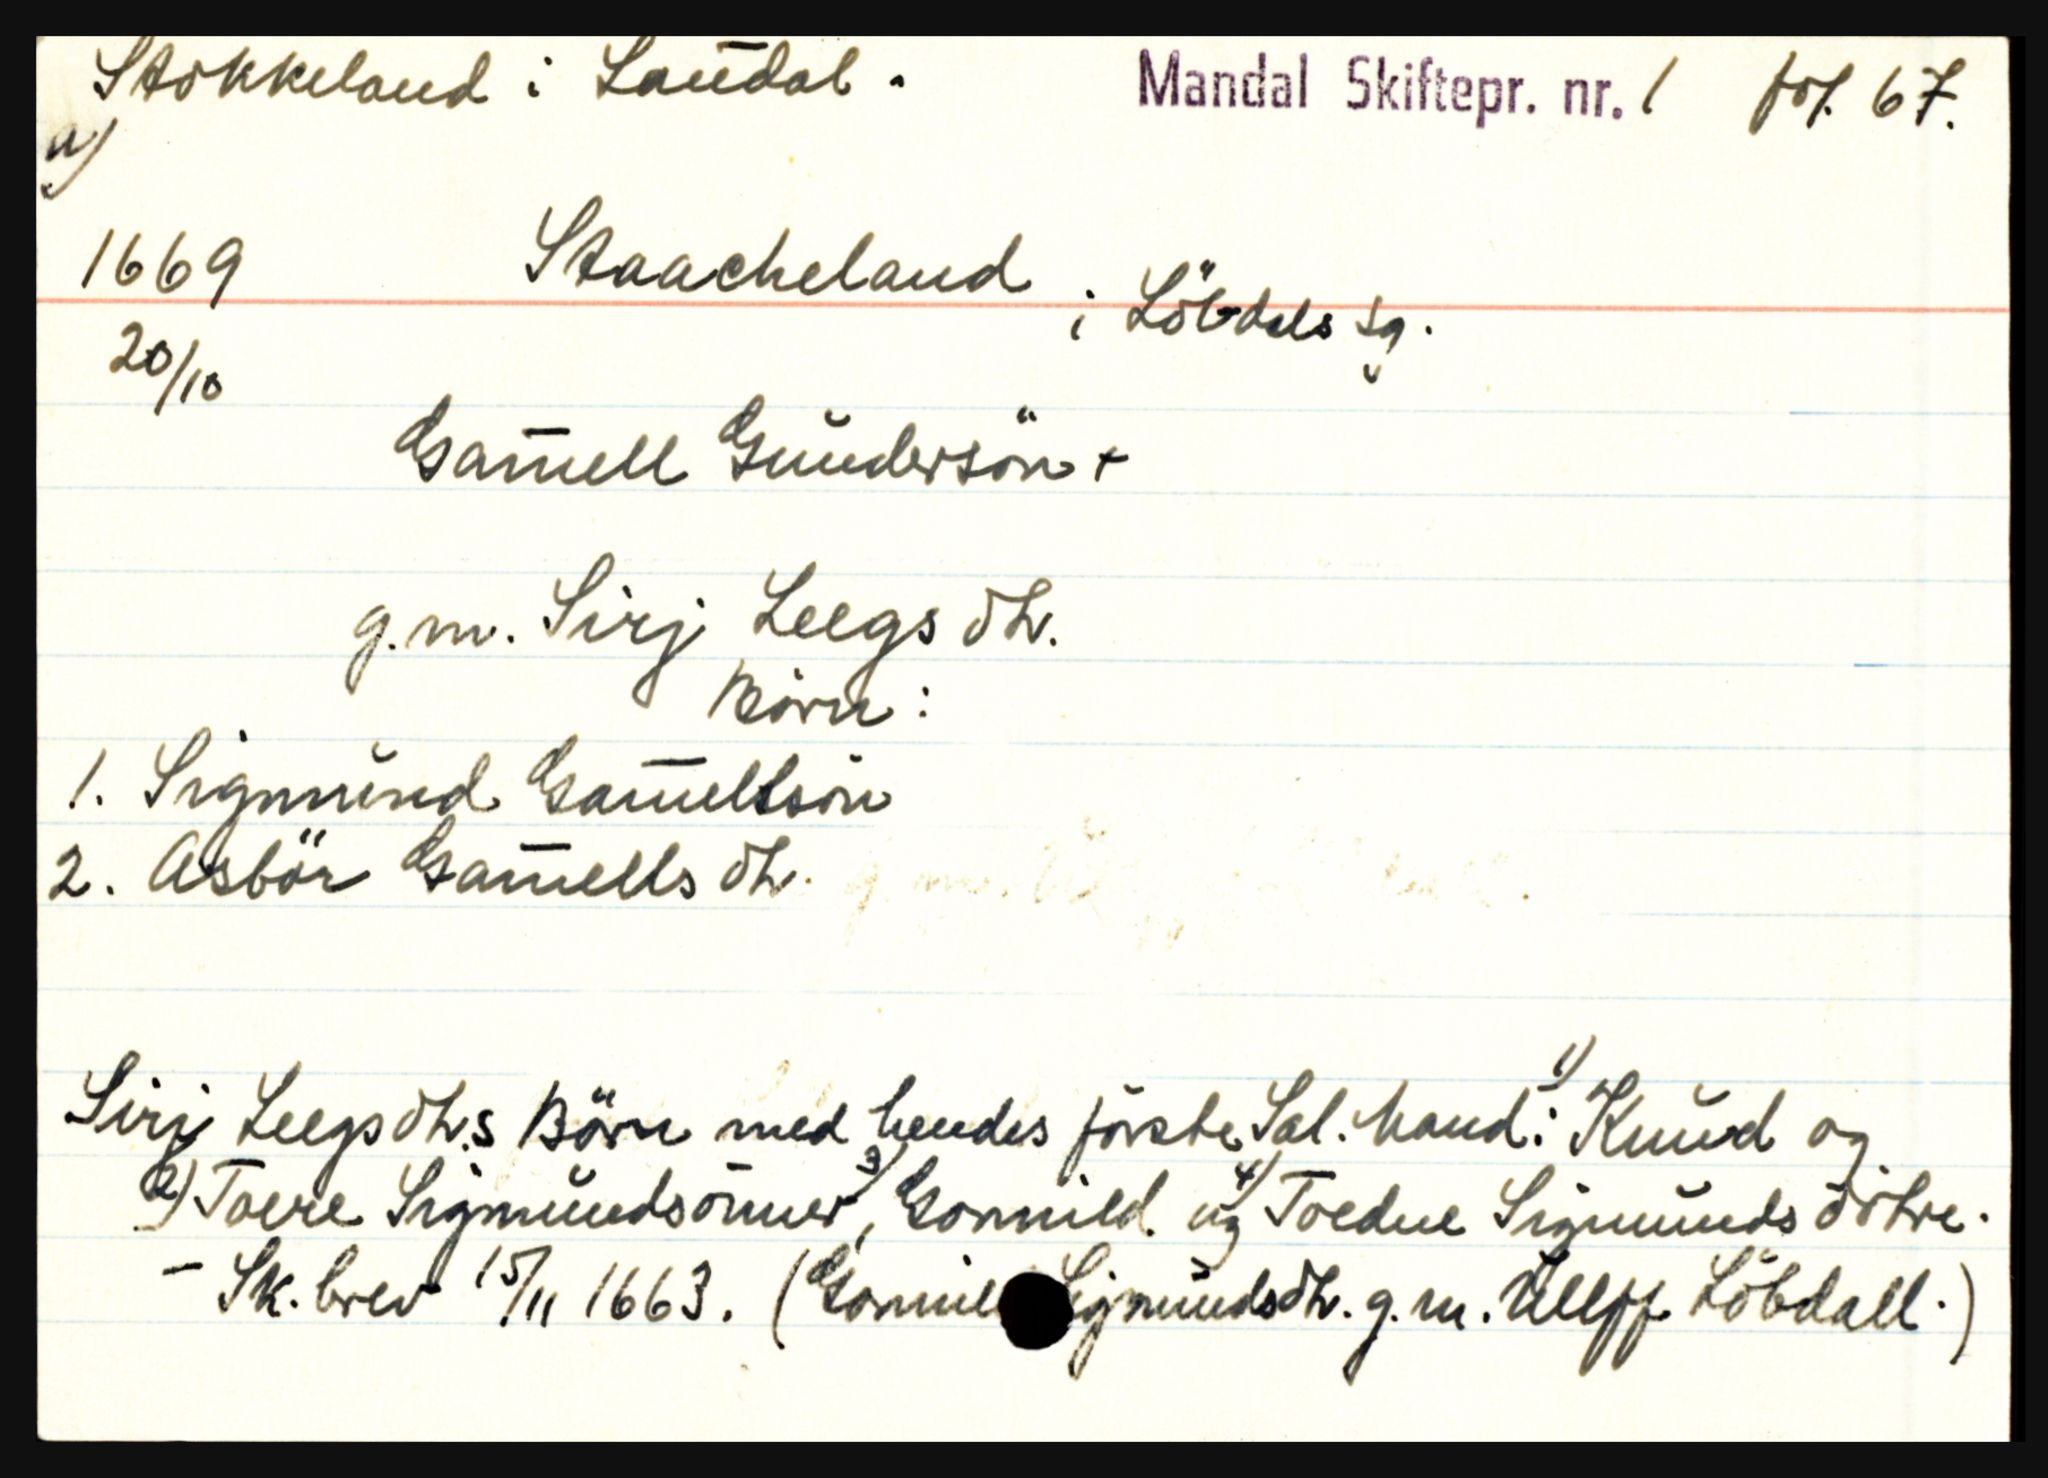 Stokkeland i Laudal. Mandal Skiftepr. nr. 1 fol. 67.
a)
1669 Staacheland i Löbdals sg.
20/10
Gam̄ell Gŭndersön +
g.m. Sirj Leegsdtr.
Börn:
1. Sigmŭnd Gam̄ellsön
2. Asbör Gam̄ellsdtr.
Sirj Leegsdtr.s Börn med hendes förste Sal. Mand: 1) Knŭd og
2) Toere Sigmŭndsönner, 3) Gonnild og 4) Toedne Sigmŭnds dötre.
- Sk.brev 15/11 1663. (Gonnild Sigmŭndsdtr. g.m. Ŭllff Löbdall.)